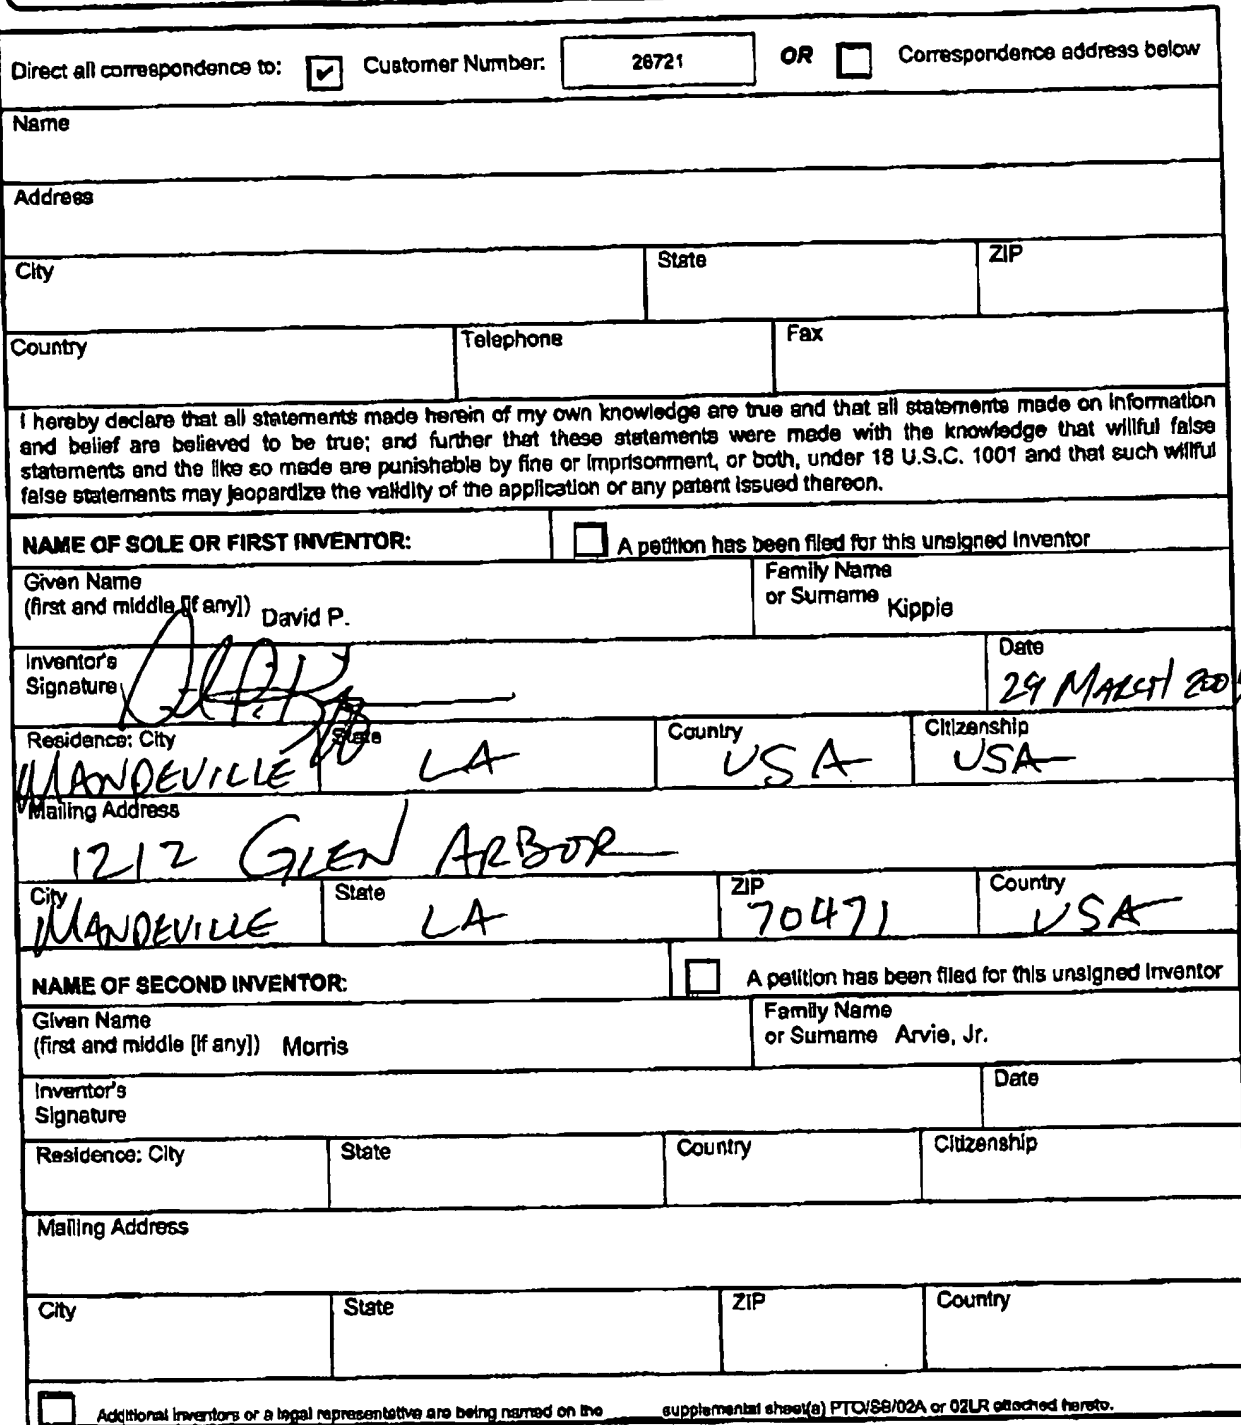 Direct all correspondence to: ✔ Customer Number: 26721 OR Correspondence address below
Name
Address
City State ZIP
Country Telephone Fax
I hereby declare that all statements made herein of my own knowledge are true and that all statements made on information
and belief are believed to be true; and further that these statements were made with the knowledge that willful false
statements and the like so made are punishable by fine or imprisonment, or both, under 18 U.S.C. 1001 and that such willful
false statements may jeopardize the validity of the application or any patent issued thereon.
NAME OF SOLE OR FIRST INVENTOR: A petition has been filed for this unsigned inventor
Given Name Family Name
(first and middle [if any]) David P. or Surname Kippie
Inventor's Date
Signature 29 MARCH
Residence: City State Country Citizenship
MANDEVILLE LA USA USA
Mailing Address
1212 GLEN ARBOR
City State ZIP Country
MANDEVILLE LA 70471 USA
NAME OF SECOND INVENTOR: A petition has been filed for this unsigned inventor
Given Name Family Name
(first and middle [if any]) Morris or Surname Arvie, Jr.
Inventor's Date
Signature
Residence: City State Country Citizenship
Mailing Address
City State ZIP Country
Additional inventors or a legal representative are being named on the supplemental sheet(s) PTO/SB/02A or 02LR attached hereto.